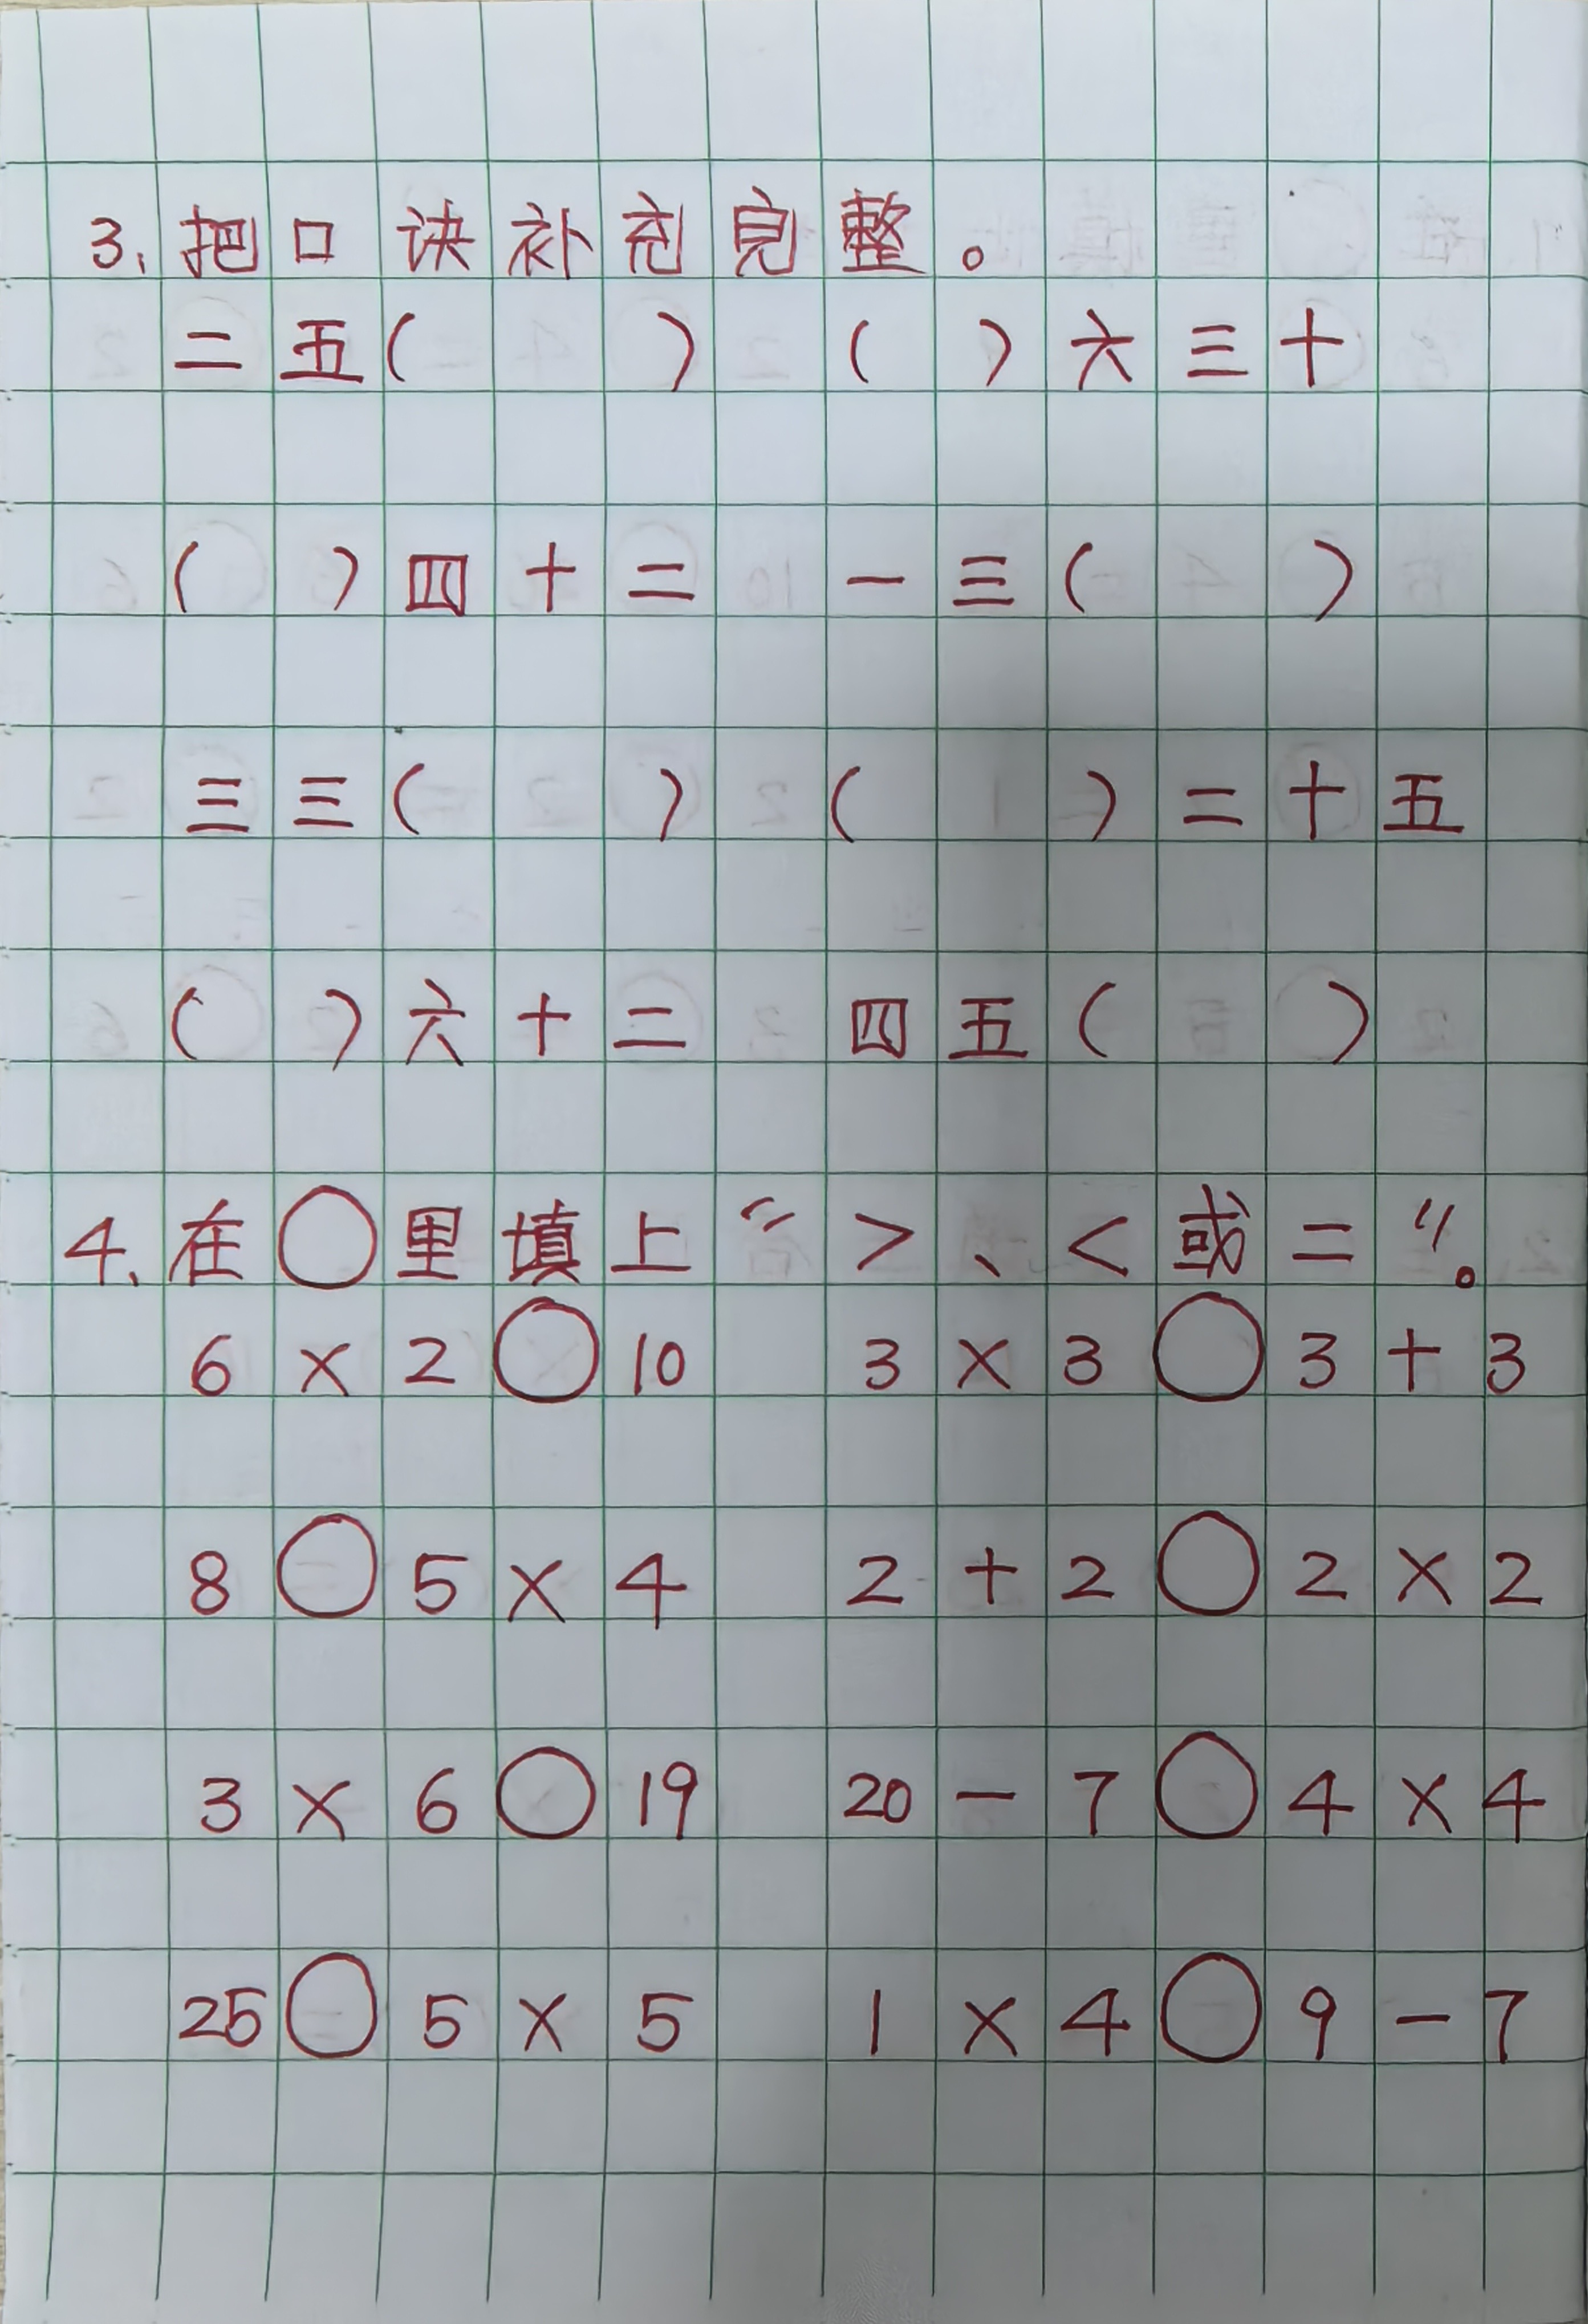 3、把口诀补充完整。
二五(　　) (　)六三十
(　)四十二 一三(　　)
三三(　　) (　　)二十五
(　)六十二 四五(　　)
4、在○里填上“>、<或=”。
6×2○10 3×3○3+3
8○5×4 2+2○2×2
3×6○19 20-7○4×4
25○5×5 1×4○9-7